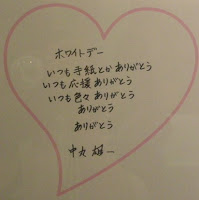 ホワイトデー
いつも手紙とかありがとう
いつも応援ありがとう
いつも色々ありがとう
ありがとう
ありがとう
中丸雄一